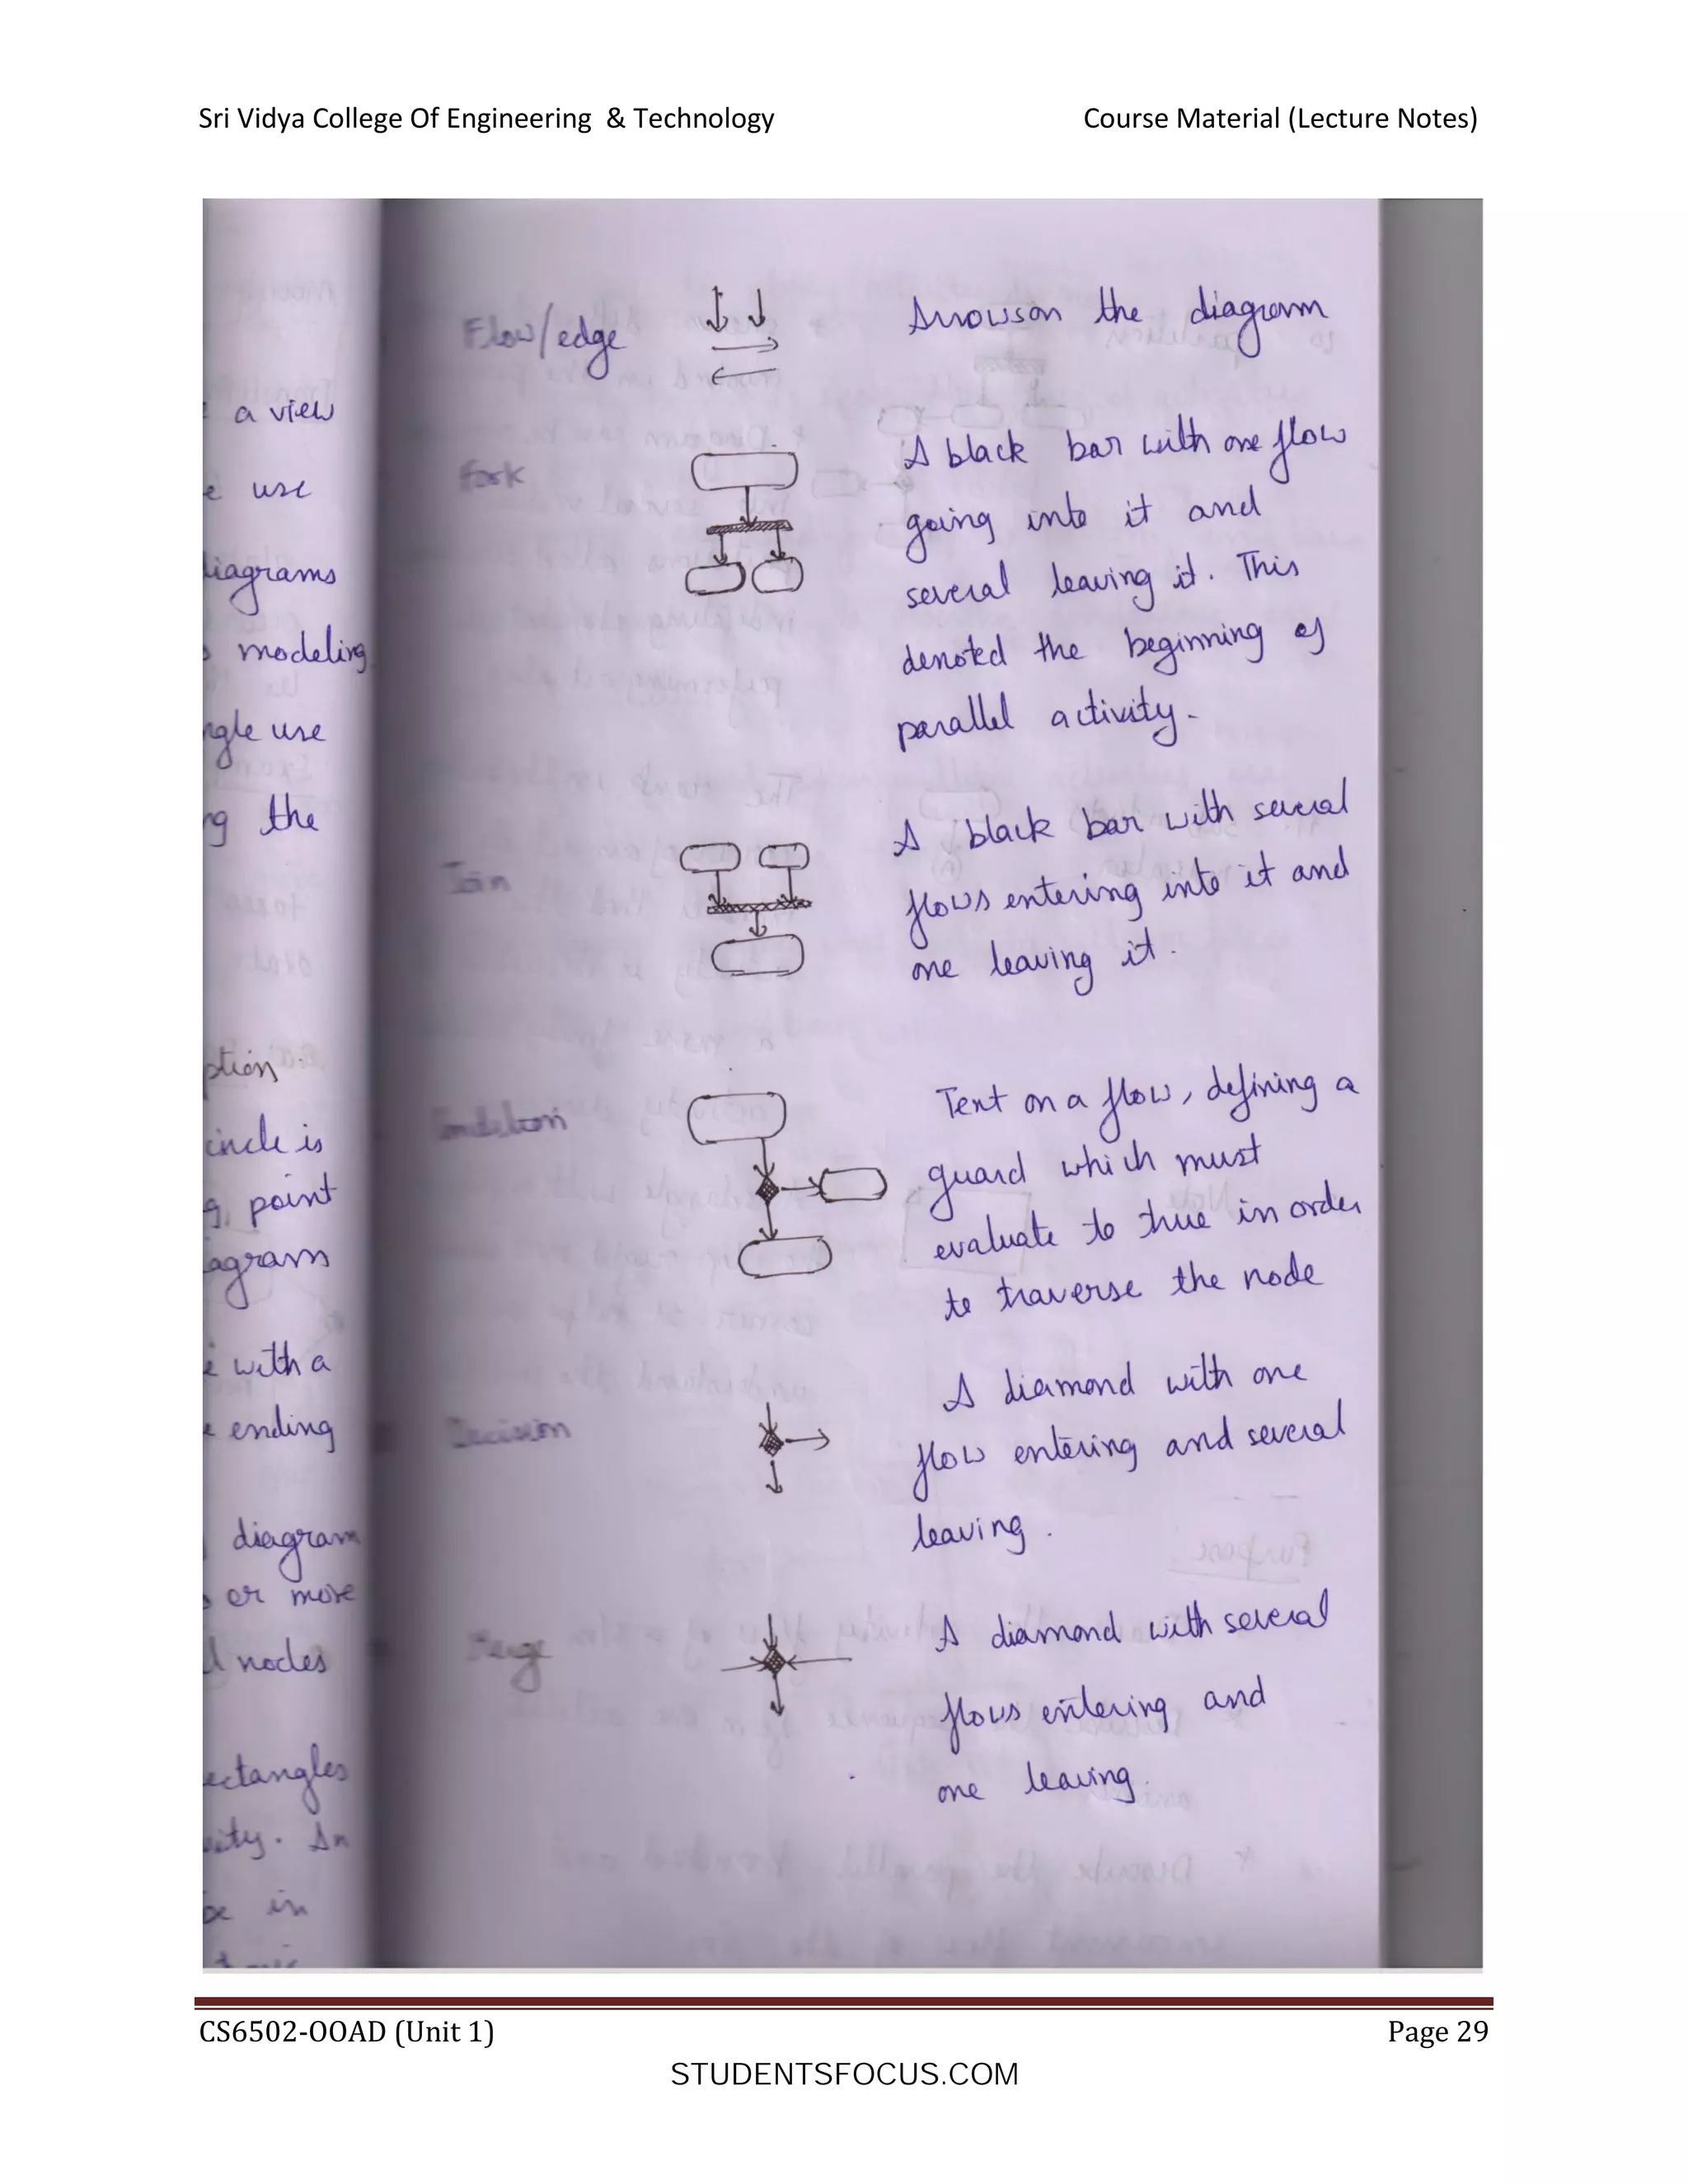 Sri Vidya College Of Engineering & Technology Course Material (Lecture Notes)
a view
use
diagrams
modeling
use
the
circle is
point
with a
ending
diagram
or more
nodes
in
Flow/edge
Arrowson the diagram
Fork
A black bar with one flow
going into it and
several leaving it. This
denoted the beginning of
parallel activity.
Join
A black bar with several
flows entering into it and
one leaving it.
Condition
Text on a flow, defining a
guard which must
evaluate to true in order
to traverse the node
Decision
A diamond with one
flow entering and several
leaving.
Merge
A diamond with several
flows entering and
one leaving.
CS6502-OOAD (Unit 1) Page 29
STUDENTSFOCUS.COM